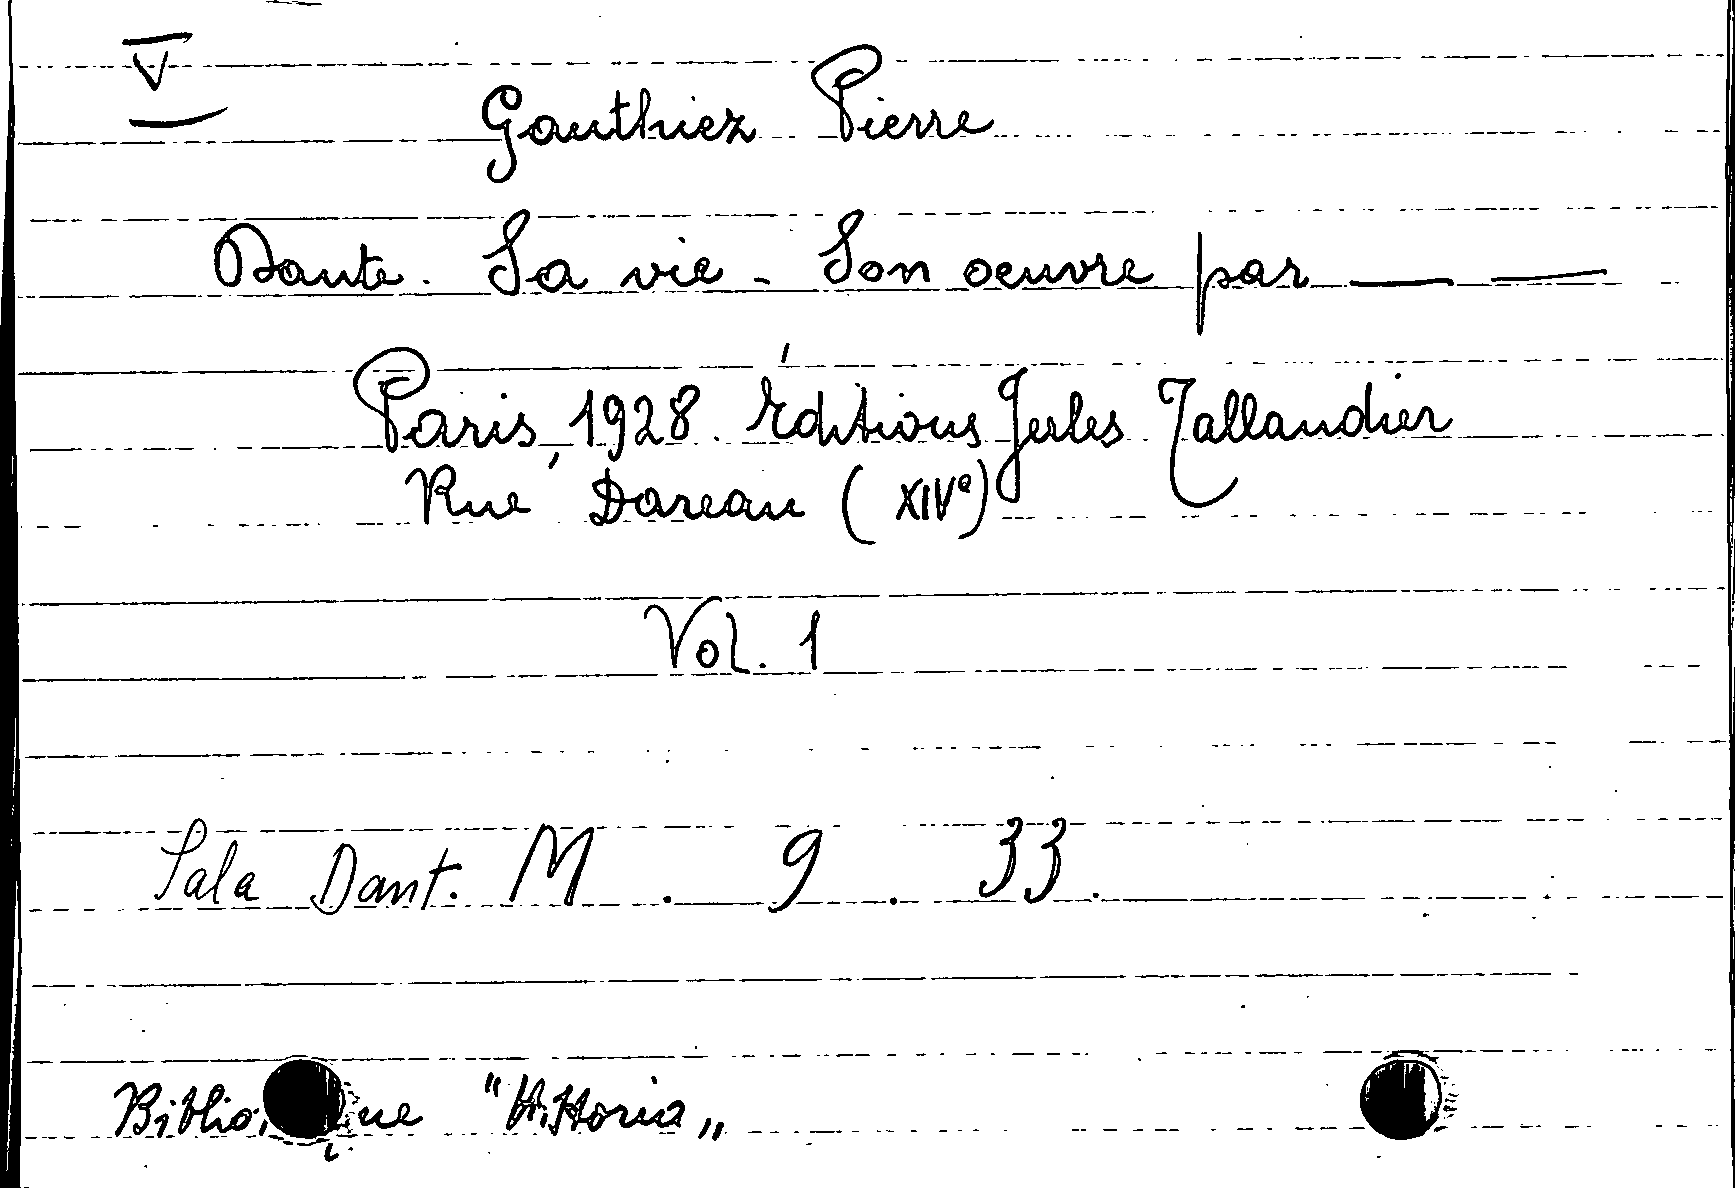 V
Gauthiez Pierre
Dante. Sa vie - Son oeuvre par — —
Paris, 1928. Éditions Jules Tallandier
Rue Dareau (XIVe)
Vol. 1
Sala Dant. M . 9 . 33.
"Historia„